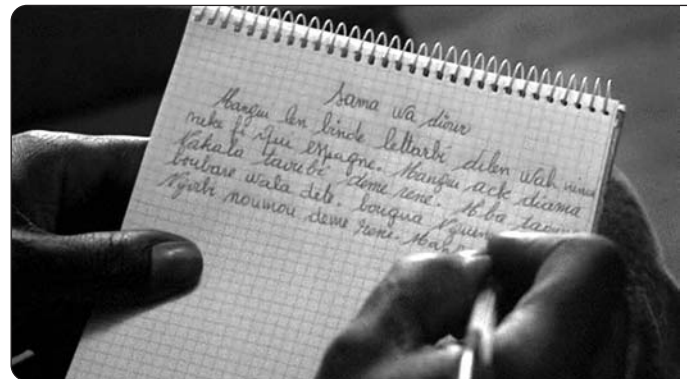 Sama wa diour
Mangui len binde lettarbi dilen wah
neke fi ġui espagne. Mangui ack diama
Kakala tawebé deme rene. Mba
boubare wala dete. bougua
Ngirbi noumou deme rene.